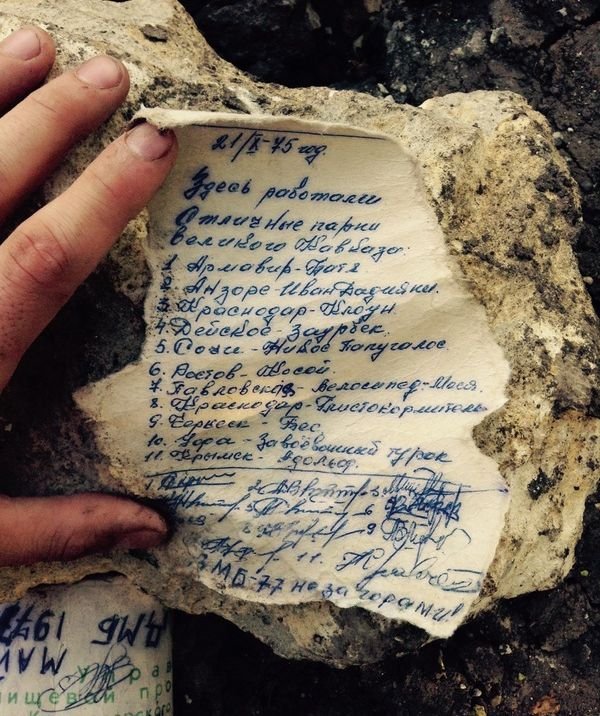 21/X-75 год.
Здесь работали
Отличные парни
Великого Кавказа:
1. Армавир-Тятя
2. Анзоре-Иван Вадимин.
3. Краснодар-Клоун.
4. Дейское-Заурбек.
5. Сочи-Никос Папуголос
6. Ростов-Косой.
7. Павловская-Велосипед-Мося.
8. Краснодар-Глистокормитель
9. Черкесск-Бес
10. Уфа-Завоёванный турок
11. Крымск-Адольф.
1.
2. 3.
5. 6
9
11.
ДМБ-77 не за горами!
ДМБ
197
МАЙ
рав
ищевой про